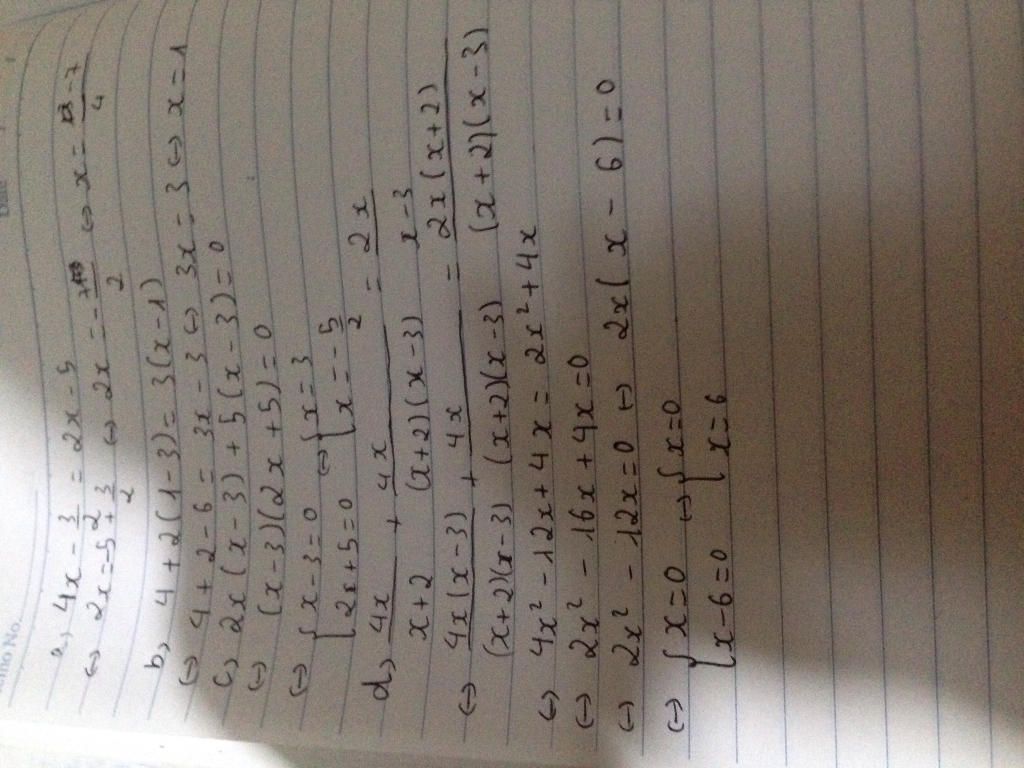 Memo No.
Date
a, 4x - 3/2 = 2x - 5
<=> 2x = -5 + 3/2 <=> 2x = -7/2 <=> x = -7/4
b, 4 + 2(1-3) = 3(x-1)
<=> 4 + 2 - 6 = 3x - 3 <=> 3x = 3 <=> x = 1
c, 2x(x-3) + 5(x-3) = 0
<=> (x-3)(2x+5) = 0
<=> [ x-3=0 <=> [ x = 3
[ 2x+5=0 [ x = -5/2
d, 4x/(x+2) + 4x/((x+2)(x-3)) = 2x/(x-3)
<=> 4x(x-3)/((x+2)(x-3)) + 4x/((x+2)(x-3)) = 2x(x+2)/((x+2)(x-3))
<=> 4x² - 12x + 4x = 2x² + 4x
<=> 2x² - 16x + 4x = 0
<=> 2x² - 12x = 0 <=> 2x(x - 6) = 0
<=> [ x = 0 <=> [ x = 0
[ x-6=0 [ x = 6